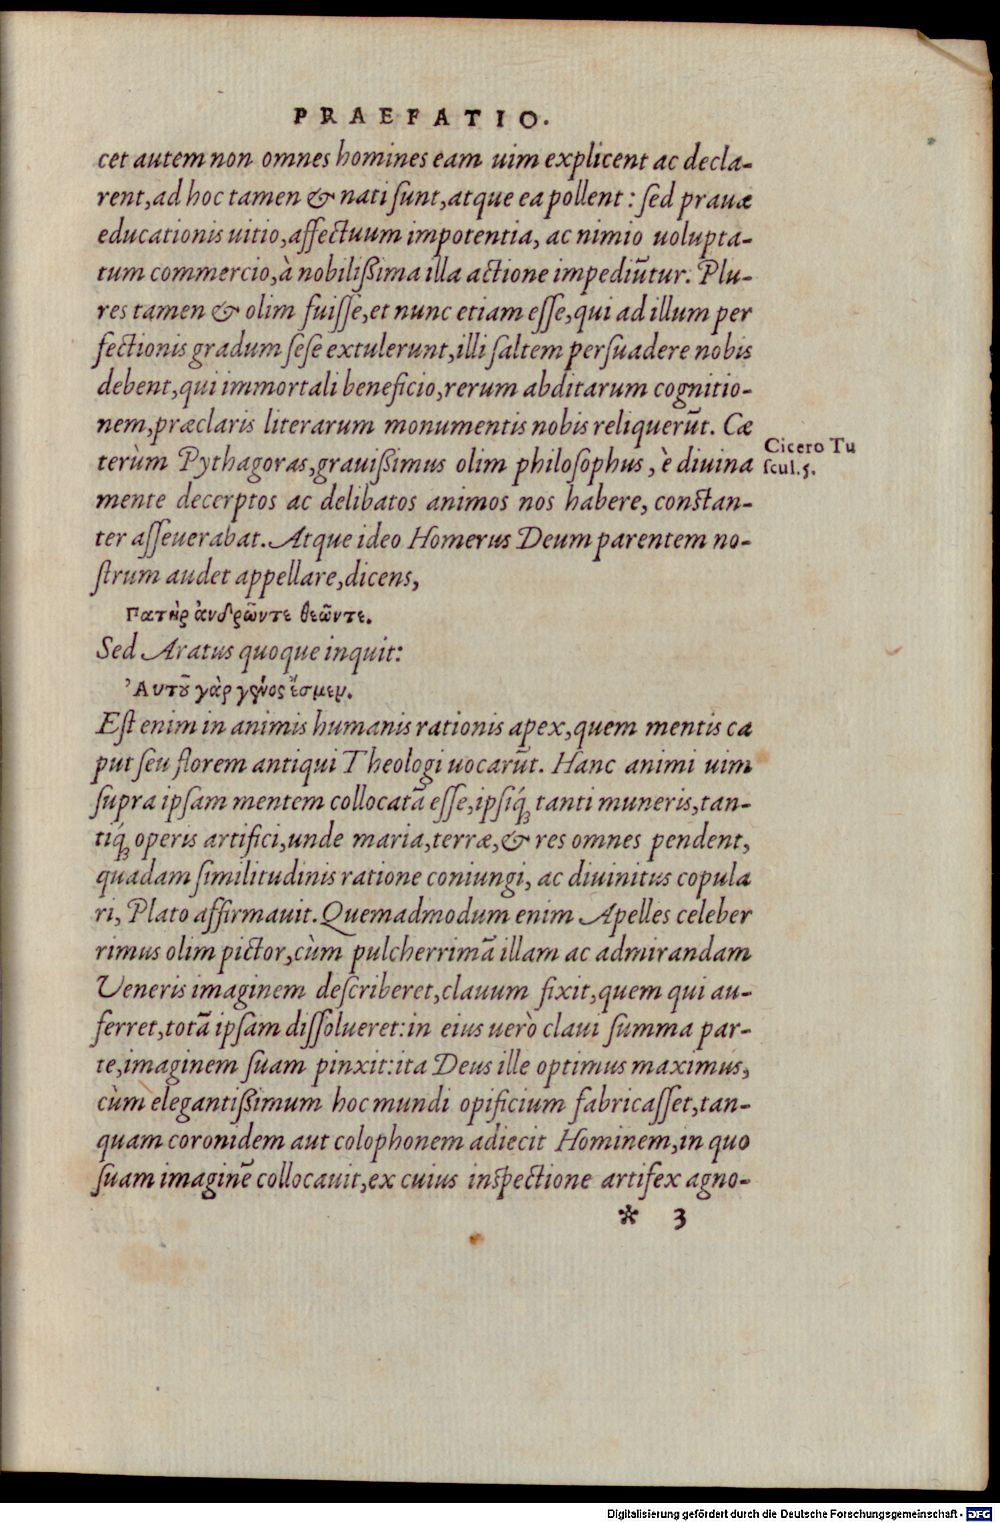 PRAEFATIO.
cet autem non omnes homines eam uim explicent ac decla-
rent, ad hoc tamen & nati ſunt, atque ea pollent: ſed prauæ
educationis uitio, affectuum impotentia, ac nimio uolupta-
tum commercio, à nobilißima illa actione impediũtur. Plu-
res tamen & olim fuiſſe, et nunc etiam eſſe, qui ad illum per
fectionis gradum ſeſe extulerunt, illi ſaltem perſuadere nobis
debent, qui immortali beneficio, rerum abditarum cognitio-
nem, præclaris literarum monumentis nobis reliquerũt. Cæ
terùm Pythagoras, grauißimus olim philoſophus, è diuina
Cicero Tu
ſcul. 5.
mente decerptos ac delibatos animos nos habere, conſtan-
ter aſſeuerabat. Atque ideo Homerus Deum parentem no-
ſtrum audet appellare, dicens,
Πατὴρ ἀνδρῶντε θεῶντε.
Sed Aratus quoque inquit:
Ἀυτοῦ γὰρ γένος ἔσμεν.
Eſt enim in animis humanis rationis apex, quem mentis ca
put ſeu florem antiqui Theologi uocarũt. Hanc animi uim
ſupra ipſam mentem collocatã eſſe, ipſiq́ꝫ tanti muneris, tan-
tiq́ꝫ operis artifici, unde maria, terræ, & res omnes pendent,
quadam ſimilitudinis ratione coniungi, ac diuinitus copula
ri, Plato affirmauit. Quemadmodum enim Apelles celeber
rimus olim pictor, cùm pulcherrimã illam ac admirandam
Veneris imaginem deſcriberet, clauum fixit, quem qui au-
ferret, totã ipſam diſſolueret: in eius uerò claui ſumma par-
te, imaginem ſuam pinxit: ita Deus ille optimus maximus,
cùm elegantißimum hoc mundi opificium fabricaſſet, tan-
quam coronidem aut colophonem adiecit Hominem, in quo
ſuam imaginẽ collocauit, ex cuius inſpectione artifex agno-
* 3
Digitalisierung gefördert durch die Deutsche Forschungsgemeinschaft - DFG